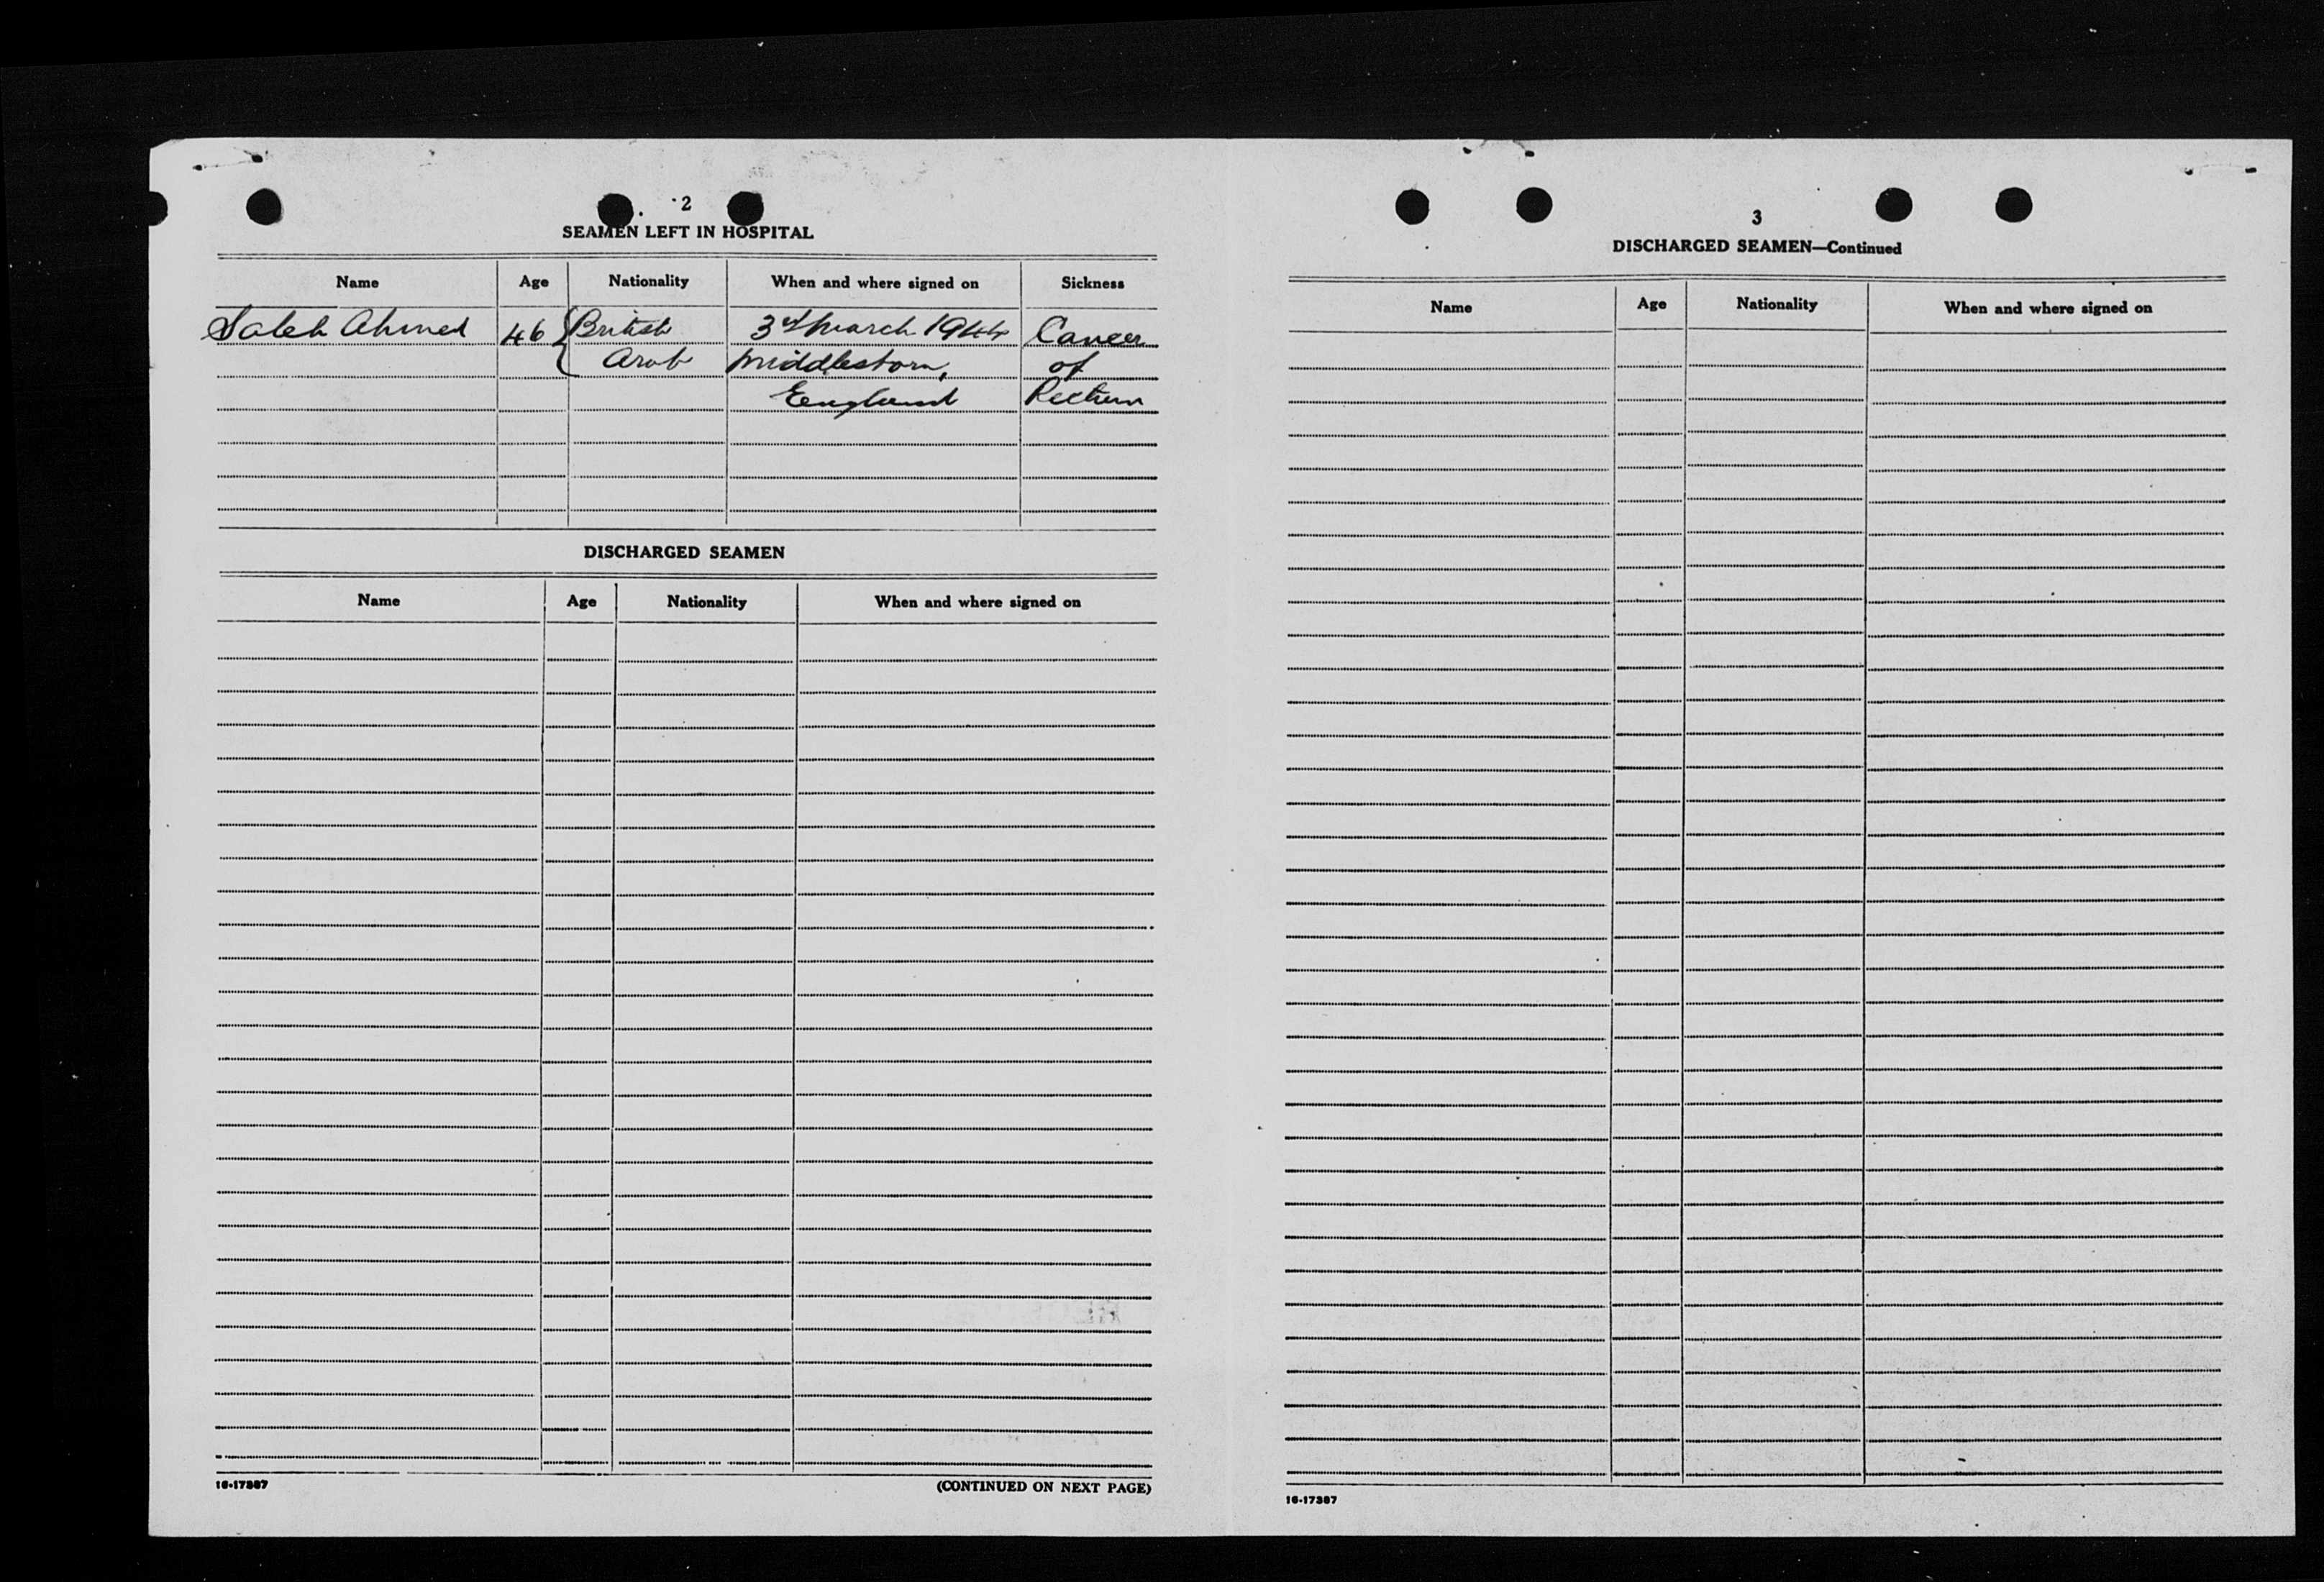 2
SEAMEN LEFT IN HOSPITAL
Name Age Nationality When and where signed on Sickness
Saleh Ahmed 46 British 3rd March 1944 Cancer
Arab Middlesboro, of
England Rectum
DISCHARGED SEAMEN
Name Age Nationality When and where signed on
16-17387 (CONTINUED ON NEXT PAGE)
3
DISCHARGED SEAMEN—Continued
Name Age Nationality When and where signed on
16-17387